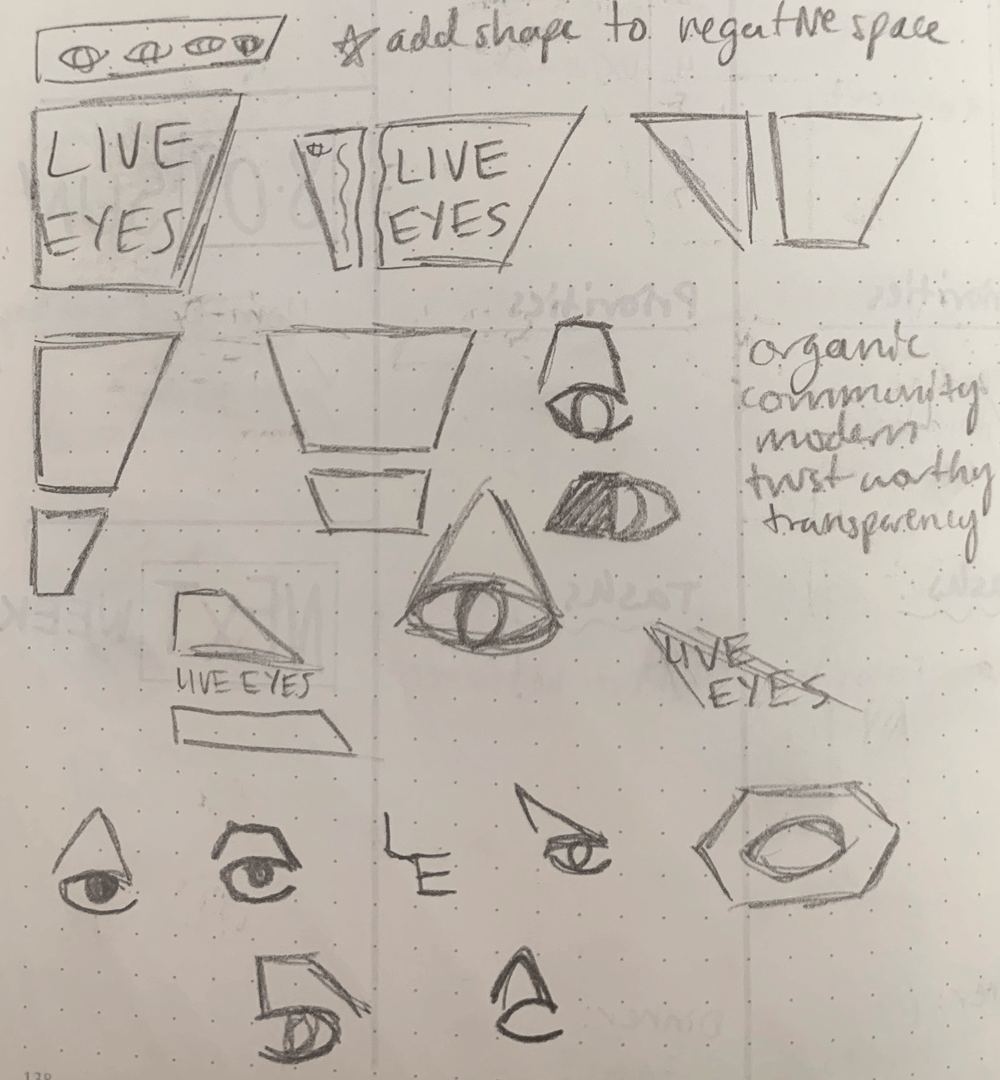 ☆ add shape to negative space
LIVE
EYES
LIVE
EYES
organic
community
modern
trustworthy
transparency
LIVE EYES
LIVE
EYES
LE
138